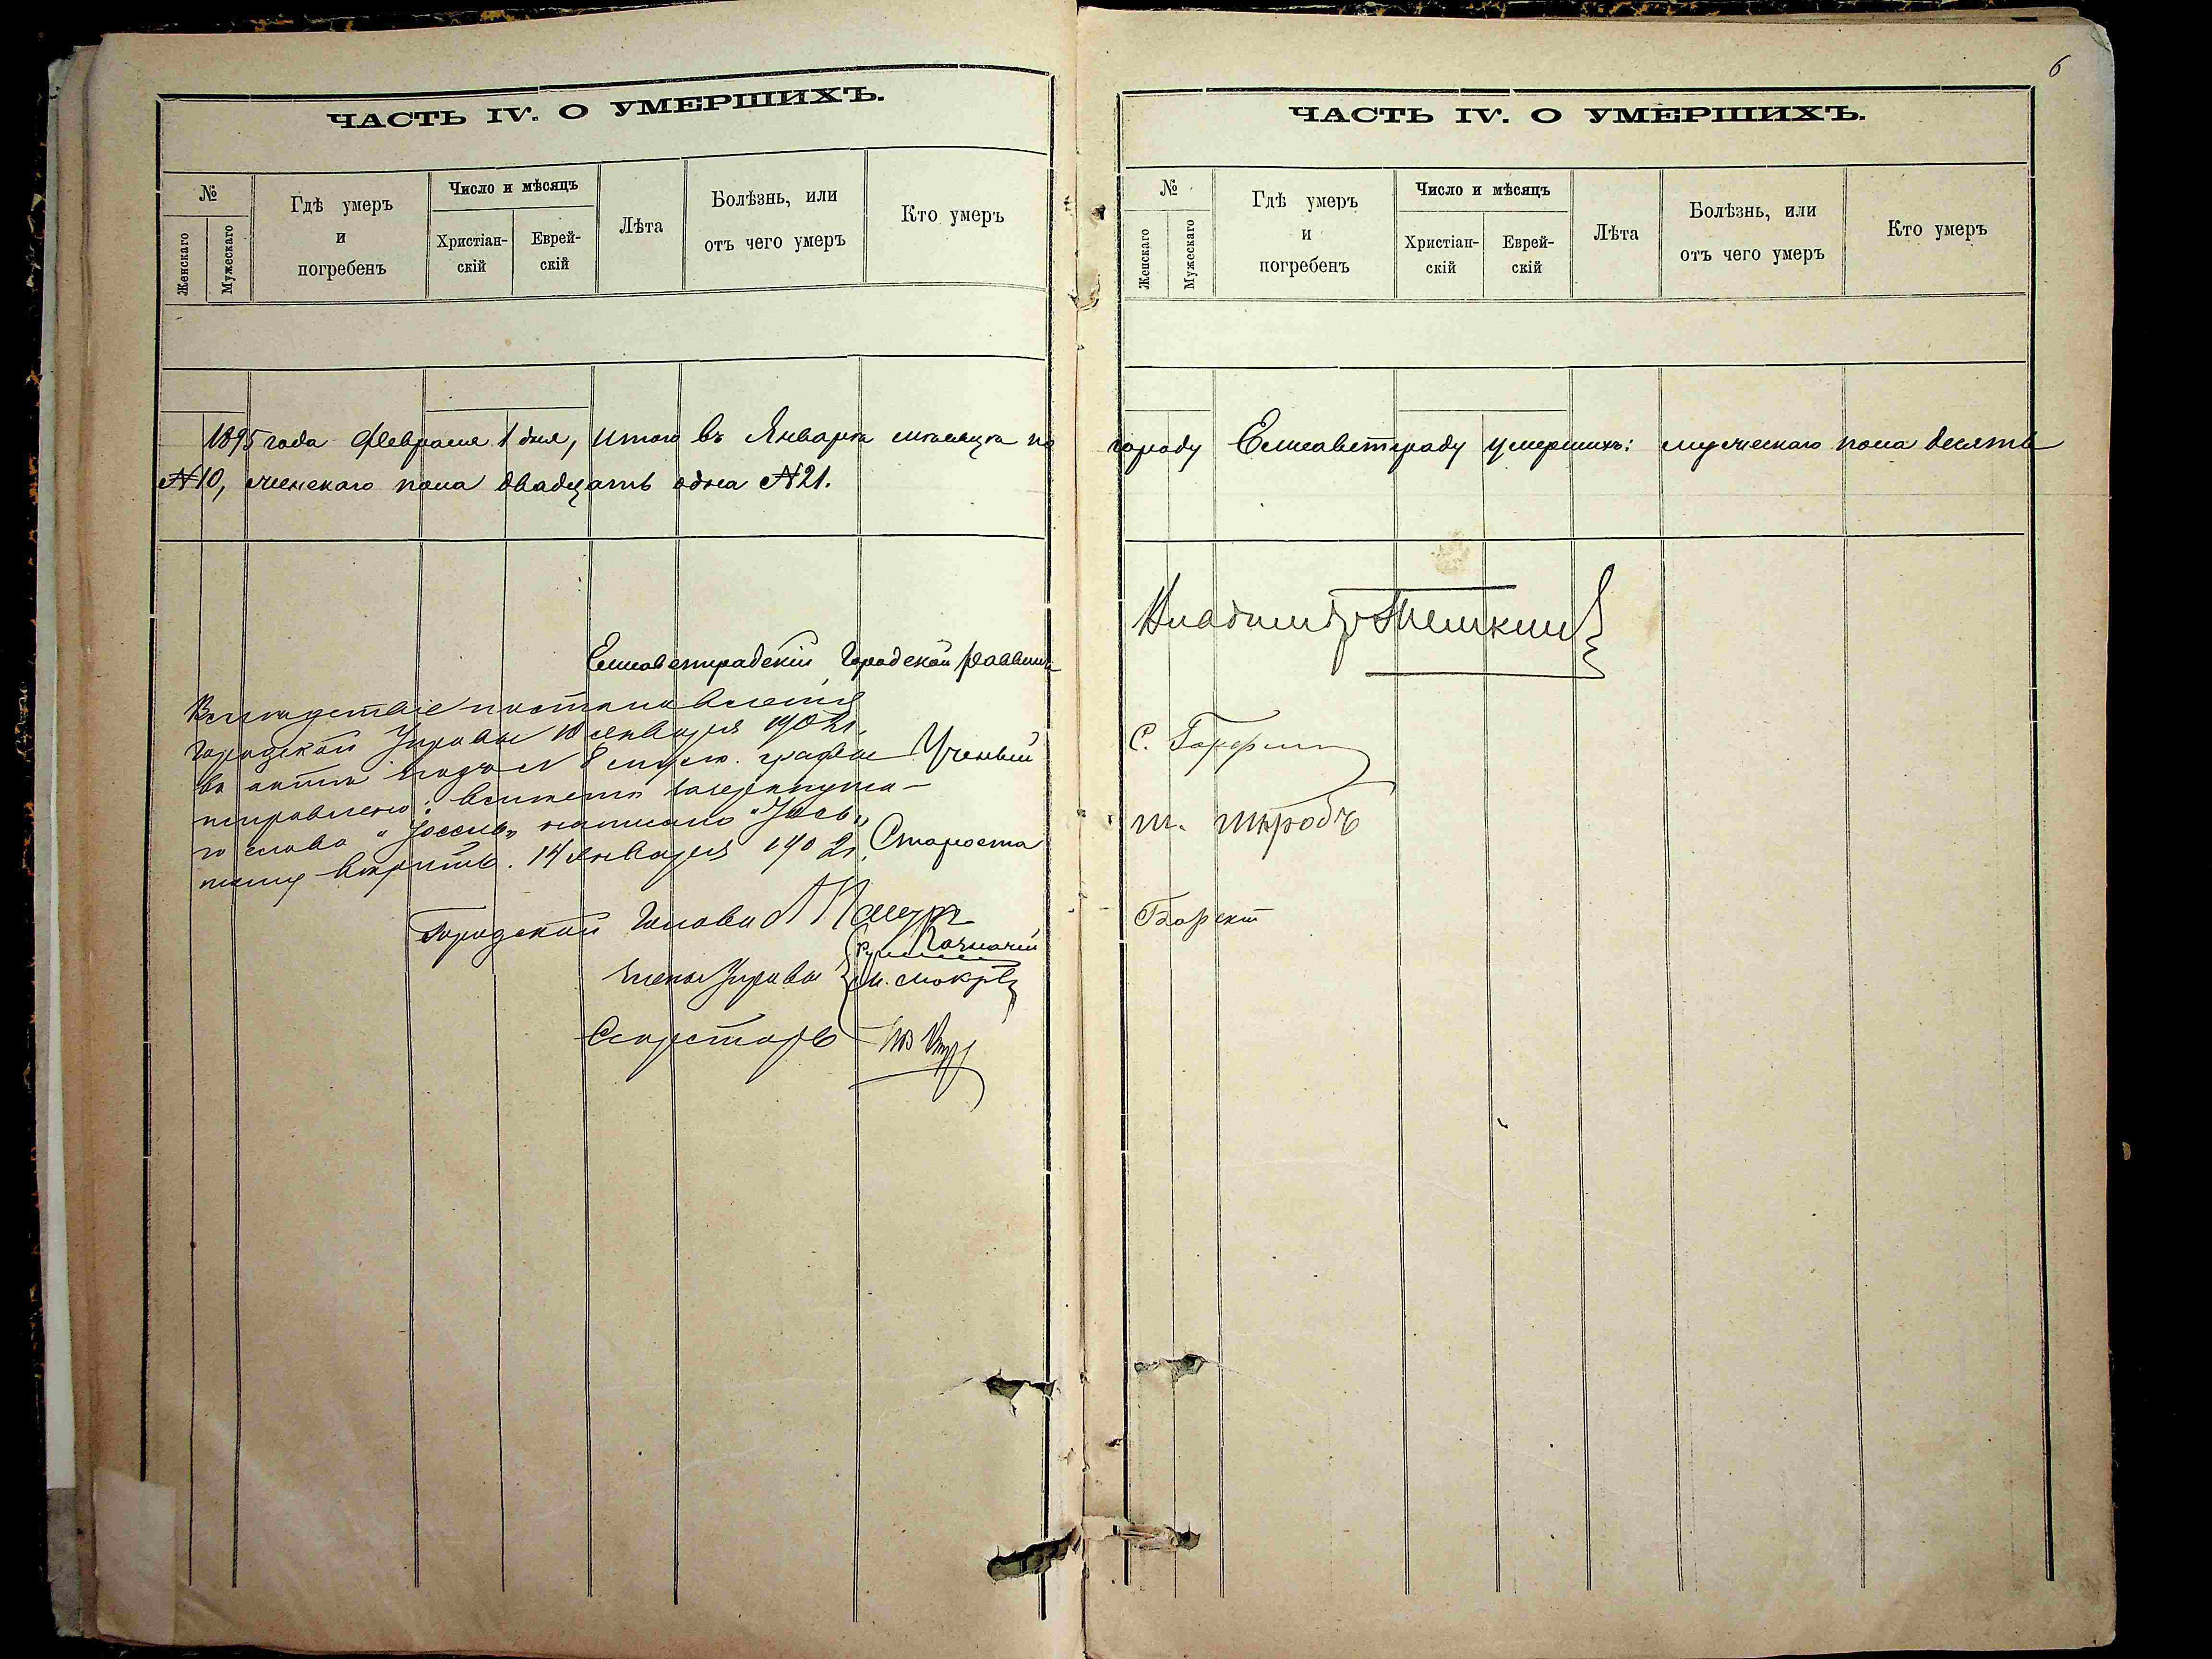 6
ЧАСТЬ IV. О УМЕРШИХЪ.
№
Женскаго
Мужескаго
Гдѣ умеръ
и
погребенъ
Число и мѣсяцъ
Христіан-
скій
Еврей-
скій
Лѣта
Болѣзнь, или
отъ чего умеръ
Кто умеръ
ЧАСТЬ IV. О УМЕРШИХЪ.
№
Женскаго
Мужескаго
Гдѣ умеръ
и
погребенъ
Число и мѣсяцъ
Христіан-
скій
Еврей-
скій
Лѣта
Болѣзнь, или
отъ чего умеръ
Кто умеръ
1895 года Февраля 1 дня, итого въ Январѣ мѣсяцѣ по городу Елисаветграду умершихъ: мужескаго пола десять
№10, женскаго пола двадцать одна №21.
Елисаветградскій Городской Раввинъ
Владимиръ Темкин
Вслѣдствіе постановленія
Городской Управы 10 января 1902 г.
въ актѣ № 8 муж. графы
исправлено: вмѣсто зачеркнута-
го слова "Іоссль" написано "Іось"
вѣрить. 14 января 1902 г.
Ученый
С.
Староста
Ш. Шкробъ
Городской Голова
Казначей
Члены Управы
М. Мокр
Секретарь